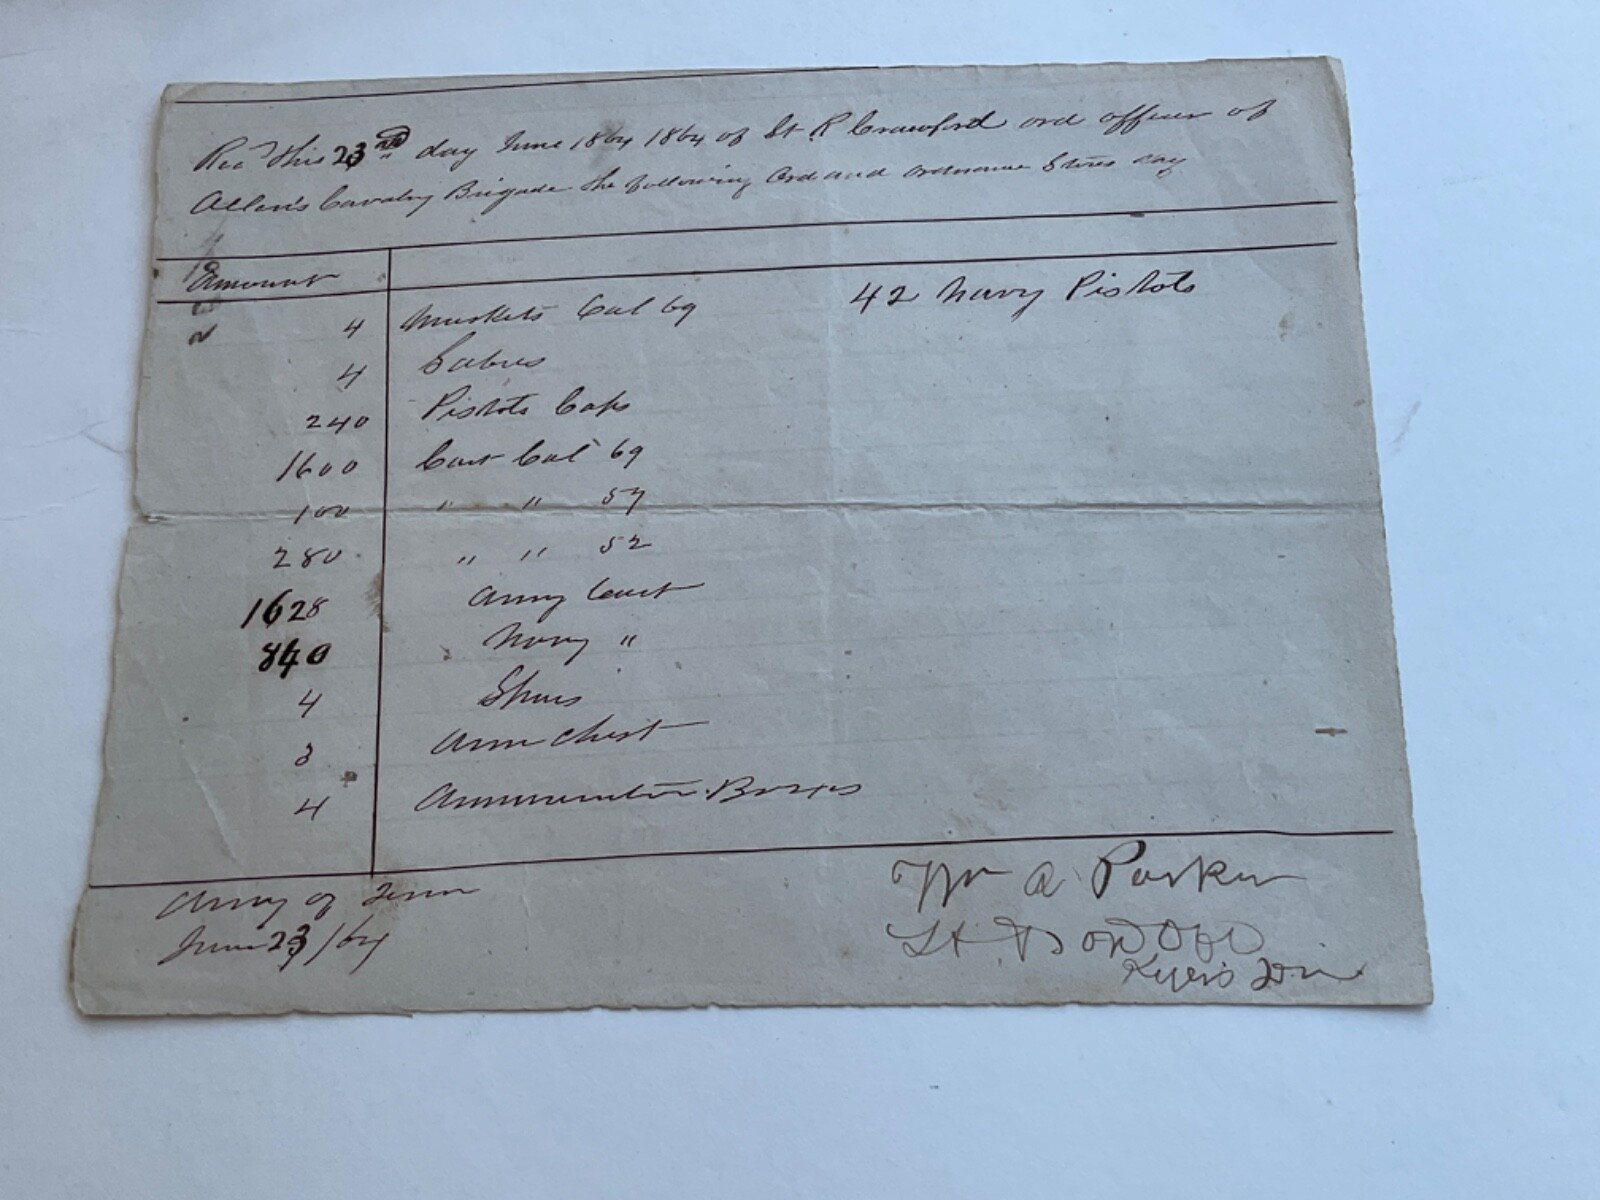 Recd this 23rd day June 1864 1864 of Lt R Crawford ord officer of
Allen's Cavalry Brigade the following Ord and ordnance Stores say
Amount
4 Muskets Cal 69 42 Navy Pistols
4 Sabres
240 Pistols Caps
1600 Cart Cal 69
100 " " 57
280 " " 52
1628 Army Cart
840 Navy "
4 Spurs
3 Arm Chest
4 Ammunition Boxes
Army of Tenn
June 23/64
Wm A Parker
Lt Ord Off
Div